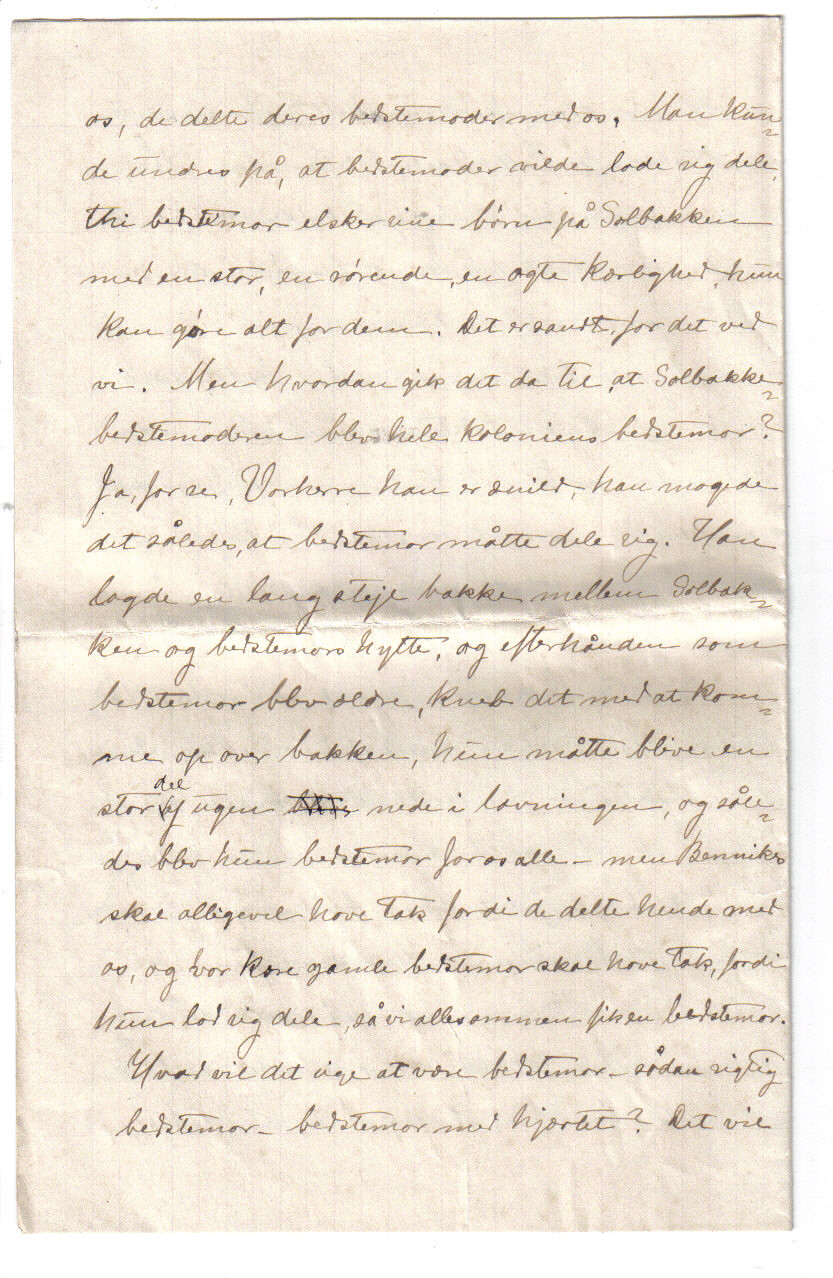 os, de delte deres bedstemoder med os. Man kun-
de undres på, at bedstemoder vilde lade sig dele,
thi bedstemor elsker sine børn på Solbakken
med en stor, en rørende, en ægte kærlighed, hun
kan gøre alt for dem. Det er sandt, for det ved
vi. Men hvordan gik det da til, at Solbakke-
bedstemoderen blev hele koloniens bedstemor?
Ja, for se, Vorherre han er snild, han magede
det således, at bedstemor måtte dele sig. Han
lagde en lang stejl bakke mellem Solbak-
ken og bedstemors hytte, og efterhånden som
bedstemor blev ældre, kneb det med at kom-
me op over bakken, hun måtte blive en
stor del af ugen nede i lavningen, og såle-
des blev hun bedstemor for os alle – men Bennikes
skal alligevel have tak fordi de delte hende med
os, og vor kære gamle bedstemor skal have tak, fordi
hun lod sig dele, så vi allesammen fik en bedstemor.
Hvad vil det sige at være bedstemor – sådan rigtig
bedstemor – bedstemor med hjærtet? Det vil